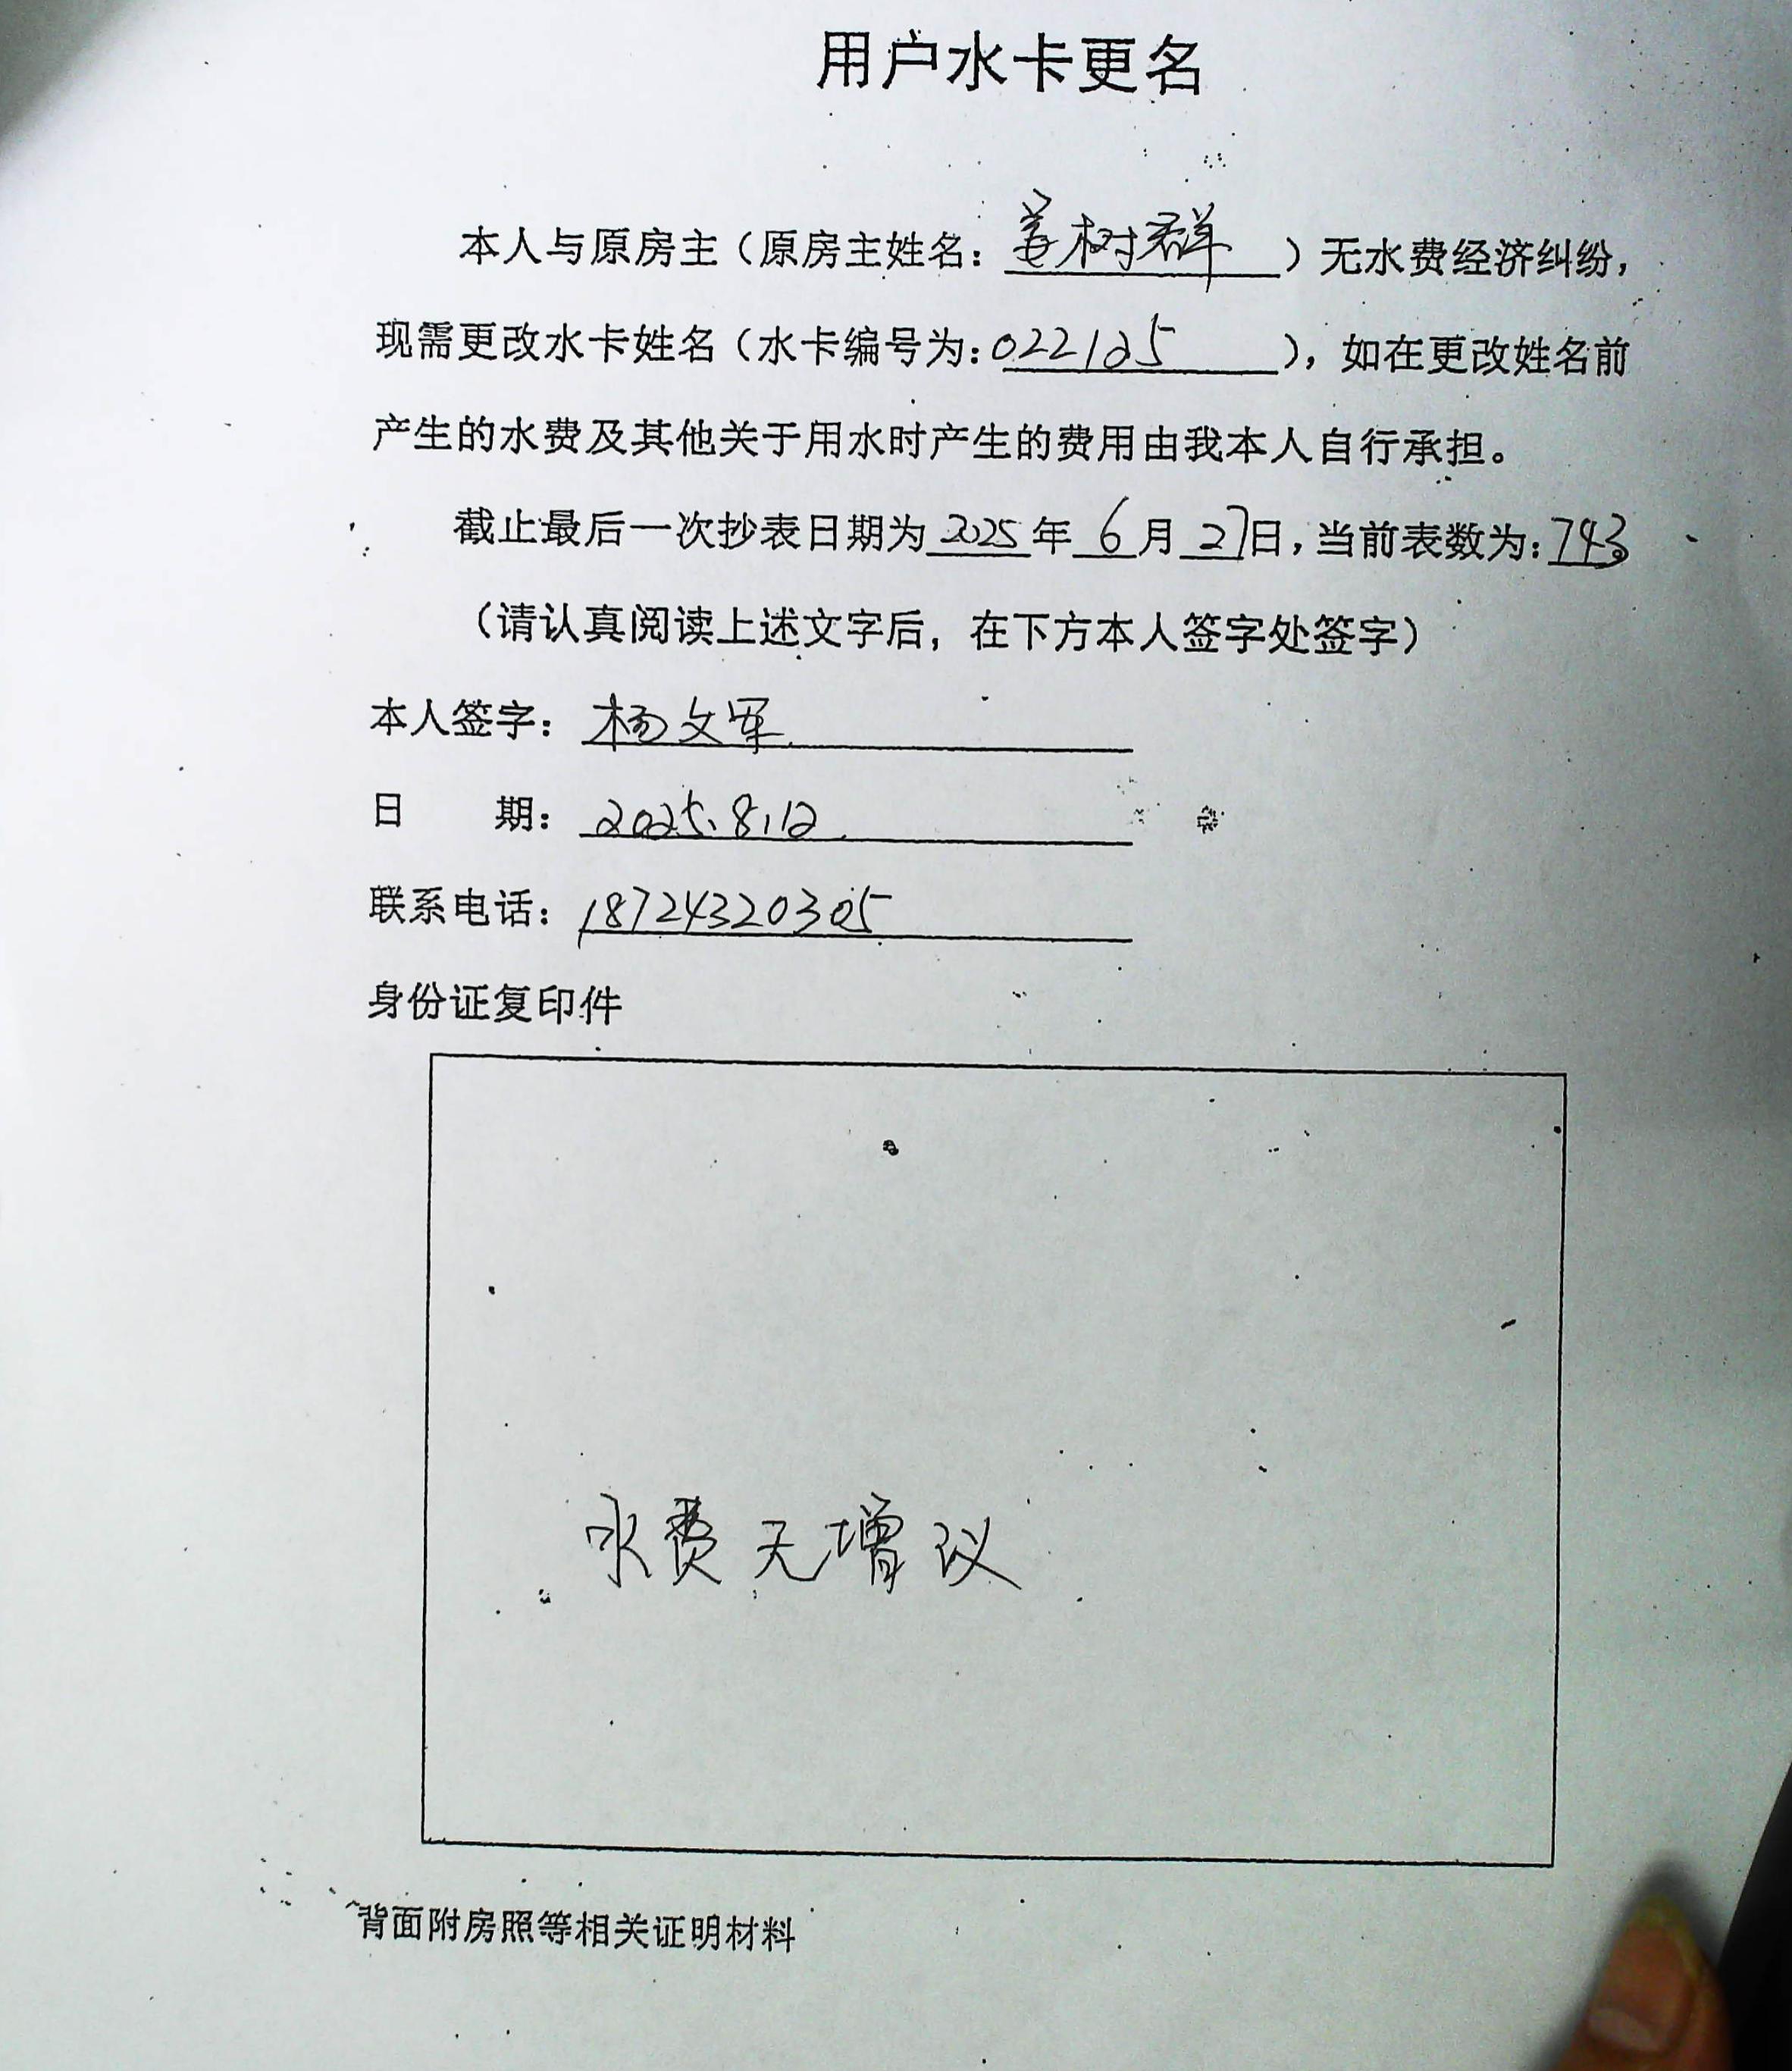 用户水卡更名
本人与原房主（原房主姓名：姜树群）无水费经济纠纷，
现需更改水卡姓名（水卡编号为：022125），如在更改姓名前
产生的水费及其他关于用水时产生的费用由我本人自行承担。
截止最后一次抄表日期为2025年6月27日，当前表数为：743
（请认真阅读上述文字后，在下方本人签字处签字）
本人签字：杨文军
日 期：2025.8.12
联系电话：18724320305
身份证复印件
水费无增议
背面附房照等相关证明材料